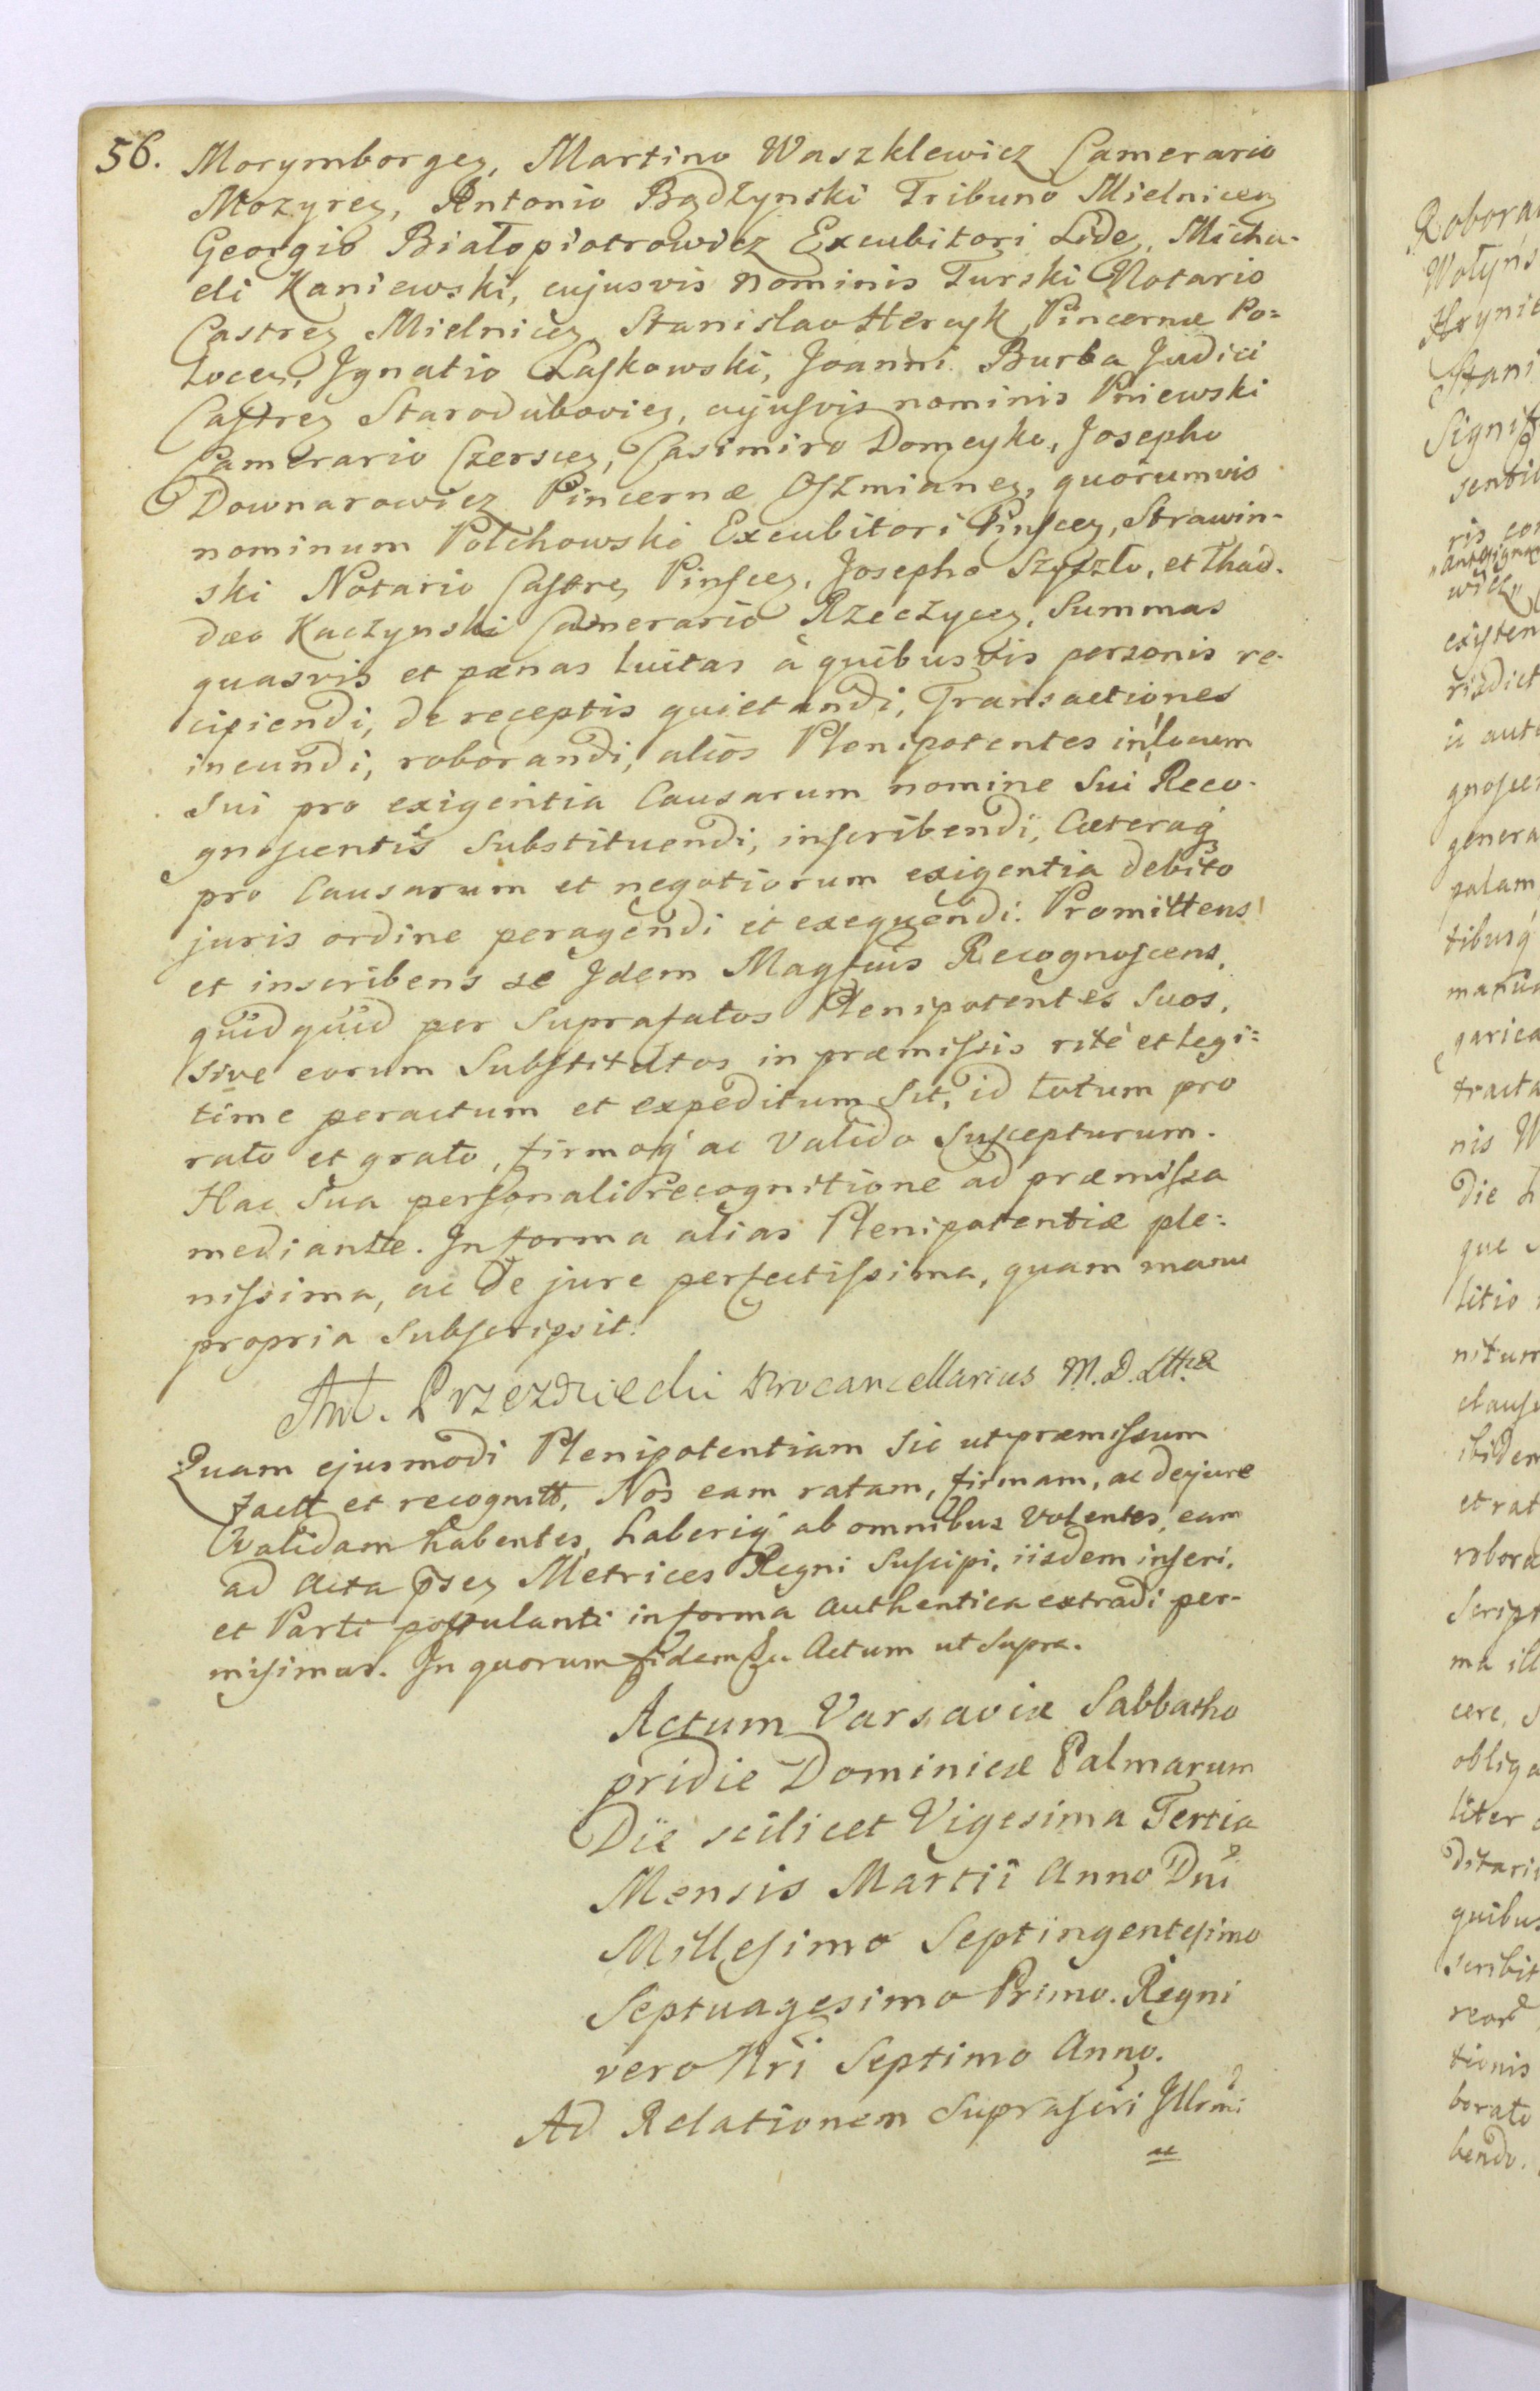 56.
Morymborgeñ, Martino Waszklewicz Camerario
Mozyreñ, Antonio Bądzynski Tribuno Mielniceñ
Georgio Białopiotrowicz Excubitori Lide, Micha-
eli Kaniewski, cujusvis nominis Turski Notario
Castreñ Mielniceñ, Stanislao Hercyk Pincernæ Po=
loceñ, Ignatio Laskowski, Joanni Burba Judici
Castreñ Starodubovieñ, cujusvis nominis Pniewski
Camerario Czersceñ, Casimiro Domeyko, Josepho
Downarowicz Pincernæ Oszmianeñ, quorumvis
nominum Polchowski Excubitori Pinsceñ, Strawin-
ski Notario Castreñ Pinsceñ, Josepho Szyszło, et Thad-
dæo Kaczynski Camerario Rzeczyceñ, Summas
quasvis et pænas luitas à quibusvis personis re-
cipiendi, de receptis quietandi, Transactiones
ineundi, roborandi, alios Plenipotentes in locum
Sui pro exigentia Causarum nomine Sui Reco-
gnoscentis Substituendi, inscribendi, Cæteraq́
pro Causarum et negotiorum exigentia debito
juris ordine peragendi et exequendi. Promittens
et inscribens se Idem Magfcus Recognoscens,
quidquid per Suprafatos Plenipotentes Suos,
Sive eorum Substitutos in præmissis ritè et legi=
time peractum et expeditum Sit, id totum pro
rato et grato, firmoq́ ac Valido Suscepturum.
Hac Sua personali recognitione ad præmissa
mediante. In forma alias Plenipotentiæ ple=
nissima, ac de jure perfectissima, quam manu
propria Subscripsit.
Ant. Przezdziecki Procancellarius M.D.Litt.æ
Quam ejusmodi Plenipotentiam Sic ut præmissum
factt et recognitt, Nos eam ratam, firmam, ac de jure
Validam habentes, haberiq́ ab omnibus Volentes, eam
ad Acta p̃señ Metrices Regni Suscipi, iisdem inseri,
et Parti postulanti in forma Authentica extradi per-
misimus. In quorum fidem &. Actum ut Supra.
Actum Varsaviæ Sabbatho
pridie Dominicæ Palmarum
Die scilicet Vigesima Tertia
Mensis Martii Anno Dñi
Millesimo Septingentesimo
Septuagesimo Primo. Regni
vero Nri Septimo Anno.
Ad Relationem Suprascri Illrmi
Roborar
Wołyńs
Hrynie
Stani
Signif
sentie
ris con
wicz
existen
risdict
generа
palam
tibusq́
manu
tracta
nis W
die
que
litio
nitum
claus
ibidem
et rat
robora
Script
ma ill
cere,
obliga
liter
ditari
quibus
scribit
tionis
borato
bendo.